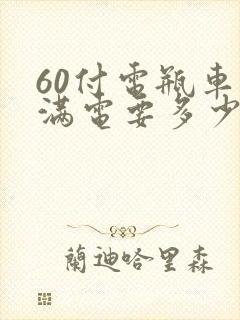 60付电瓶車
滿电要多少
蘭迪哈里森